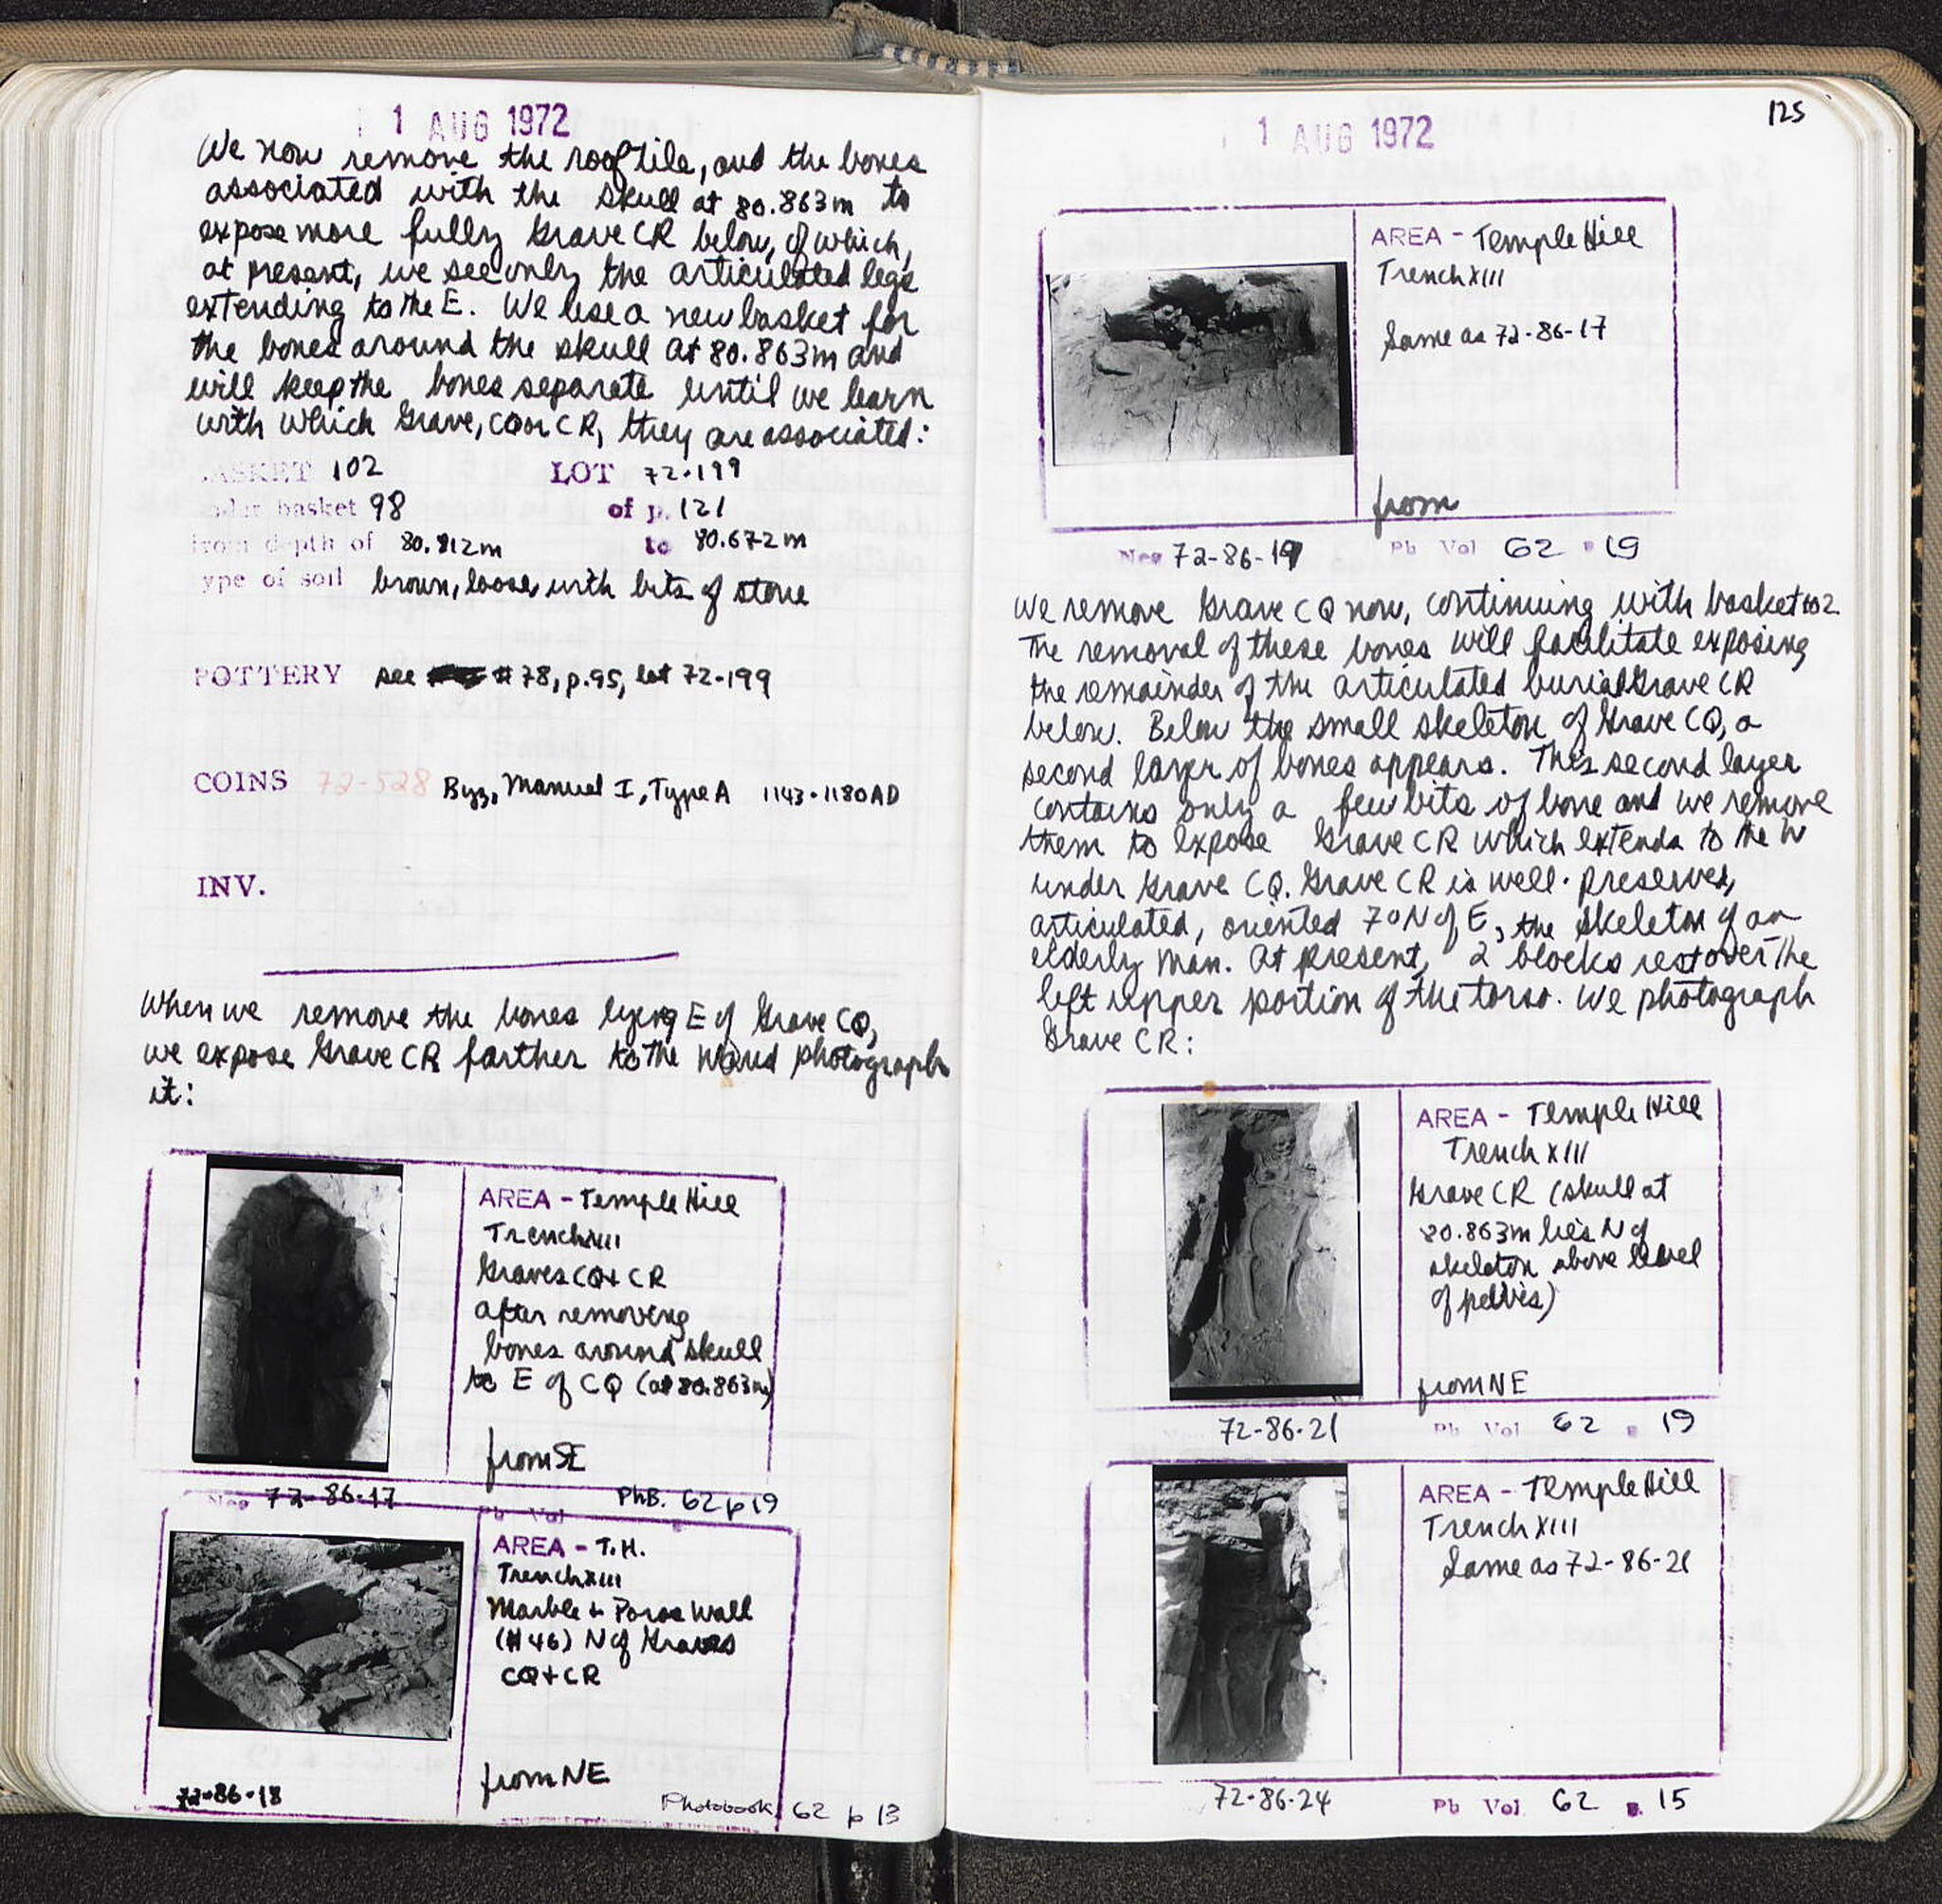 1 AUG 1972
We now remove the rooftile, and the bones
associated with the skull at 80.863m to
expose more fully Grave CR below, of which,
at present, we see only the articulated legs
extending to the E. We use a new basket for
the bones around the skull at 80.863m and
will keep the bones separate until we learn
with which Grave, CQ or CR, they are associated:
BASKET 102 LOT 72-199
under basket 98 of p. 121
from depth of 80.812m to 80.672m
type of soil brown, loose, with bits of stone
POTTERY see #78, p.95, lot 72-199
COINS 72-528 Byz, Manuel I, Type A 1143-1180 AD
INV.
When we remove the bones lying E of Grave CQ,
we expose Grave CR farther to the W and photograph
it:
AREA - Temple Hill
Trench XIII
Graves CQ + CR
after removing
bones around skull
to E of CQ (at 80.863m)
from SE
Neg 72-86-17 Pb Vol PhB. 62 p 19
AREA - T.H.
Trench XIII
Marble + Poros Wall
(#46) N of Graves
CQ + CR
from NE
72-86-18 Photobook 62 p 13
125
1 AUG 1972
AREA - Temple Hill
Trench XIII
Same as 72-86-17
from
Neg 72-86-19 Pb Vol 62 p 19
We remove Grave CQ now, continuing with basket 102.
The removal of these bones will facilitate exposing
the remainder of the articulated burial Grave CR
below. Below the small skeleton of Grave CQ, a
second layer of bones appears. This second layer
contains only a few bits of bone and we remove
them to expose Grave CR which extends to the W
under Grave CQ. Grave CR is well-preserved,
articulated, oriented 7° N of E, the skeleton of an
elderly man. At present, 2 blocks rest over the
left upper portion of the torso. We photograph
Grave CR:
AREA - Temple Hill
Trench XIII
Grave CR (skull at
80.863m lies N of
skeleton above level
of pelvis)
from NE
72-86-21 Pb Vol 62 p 19
AREA - Temple Hill
Trench XIII
Same as 72-86-21
72-86-24 Pb Vol 62 p. 15